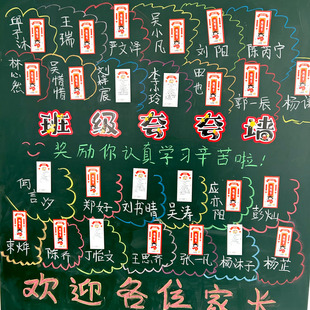 王瑞 严文泽 吴小凡 刘阳 陈丙宁
林心然 吴惜惜 刘梓宸 李小玲 田也 郭一辰
班级夸夸墙
奖励你认真学习辛苦啦!
闫言汐 郑好 刘书晴 吴涛 应亦阳 彭灿
束烨 陈乔 丁怡文 王思齐 张一凡 杨沐子 杨芷
欢迎各位家长